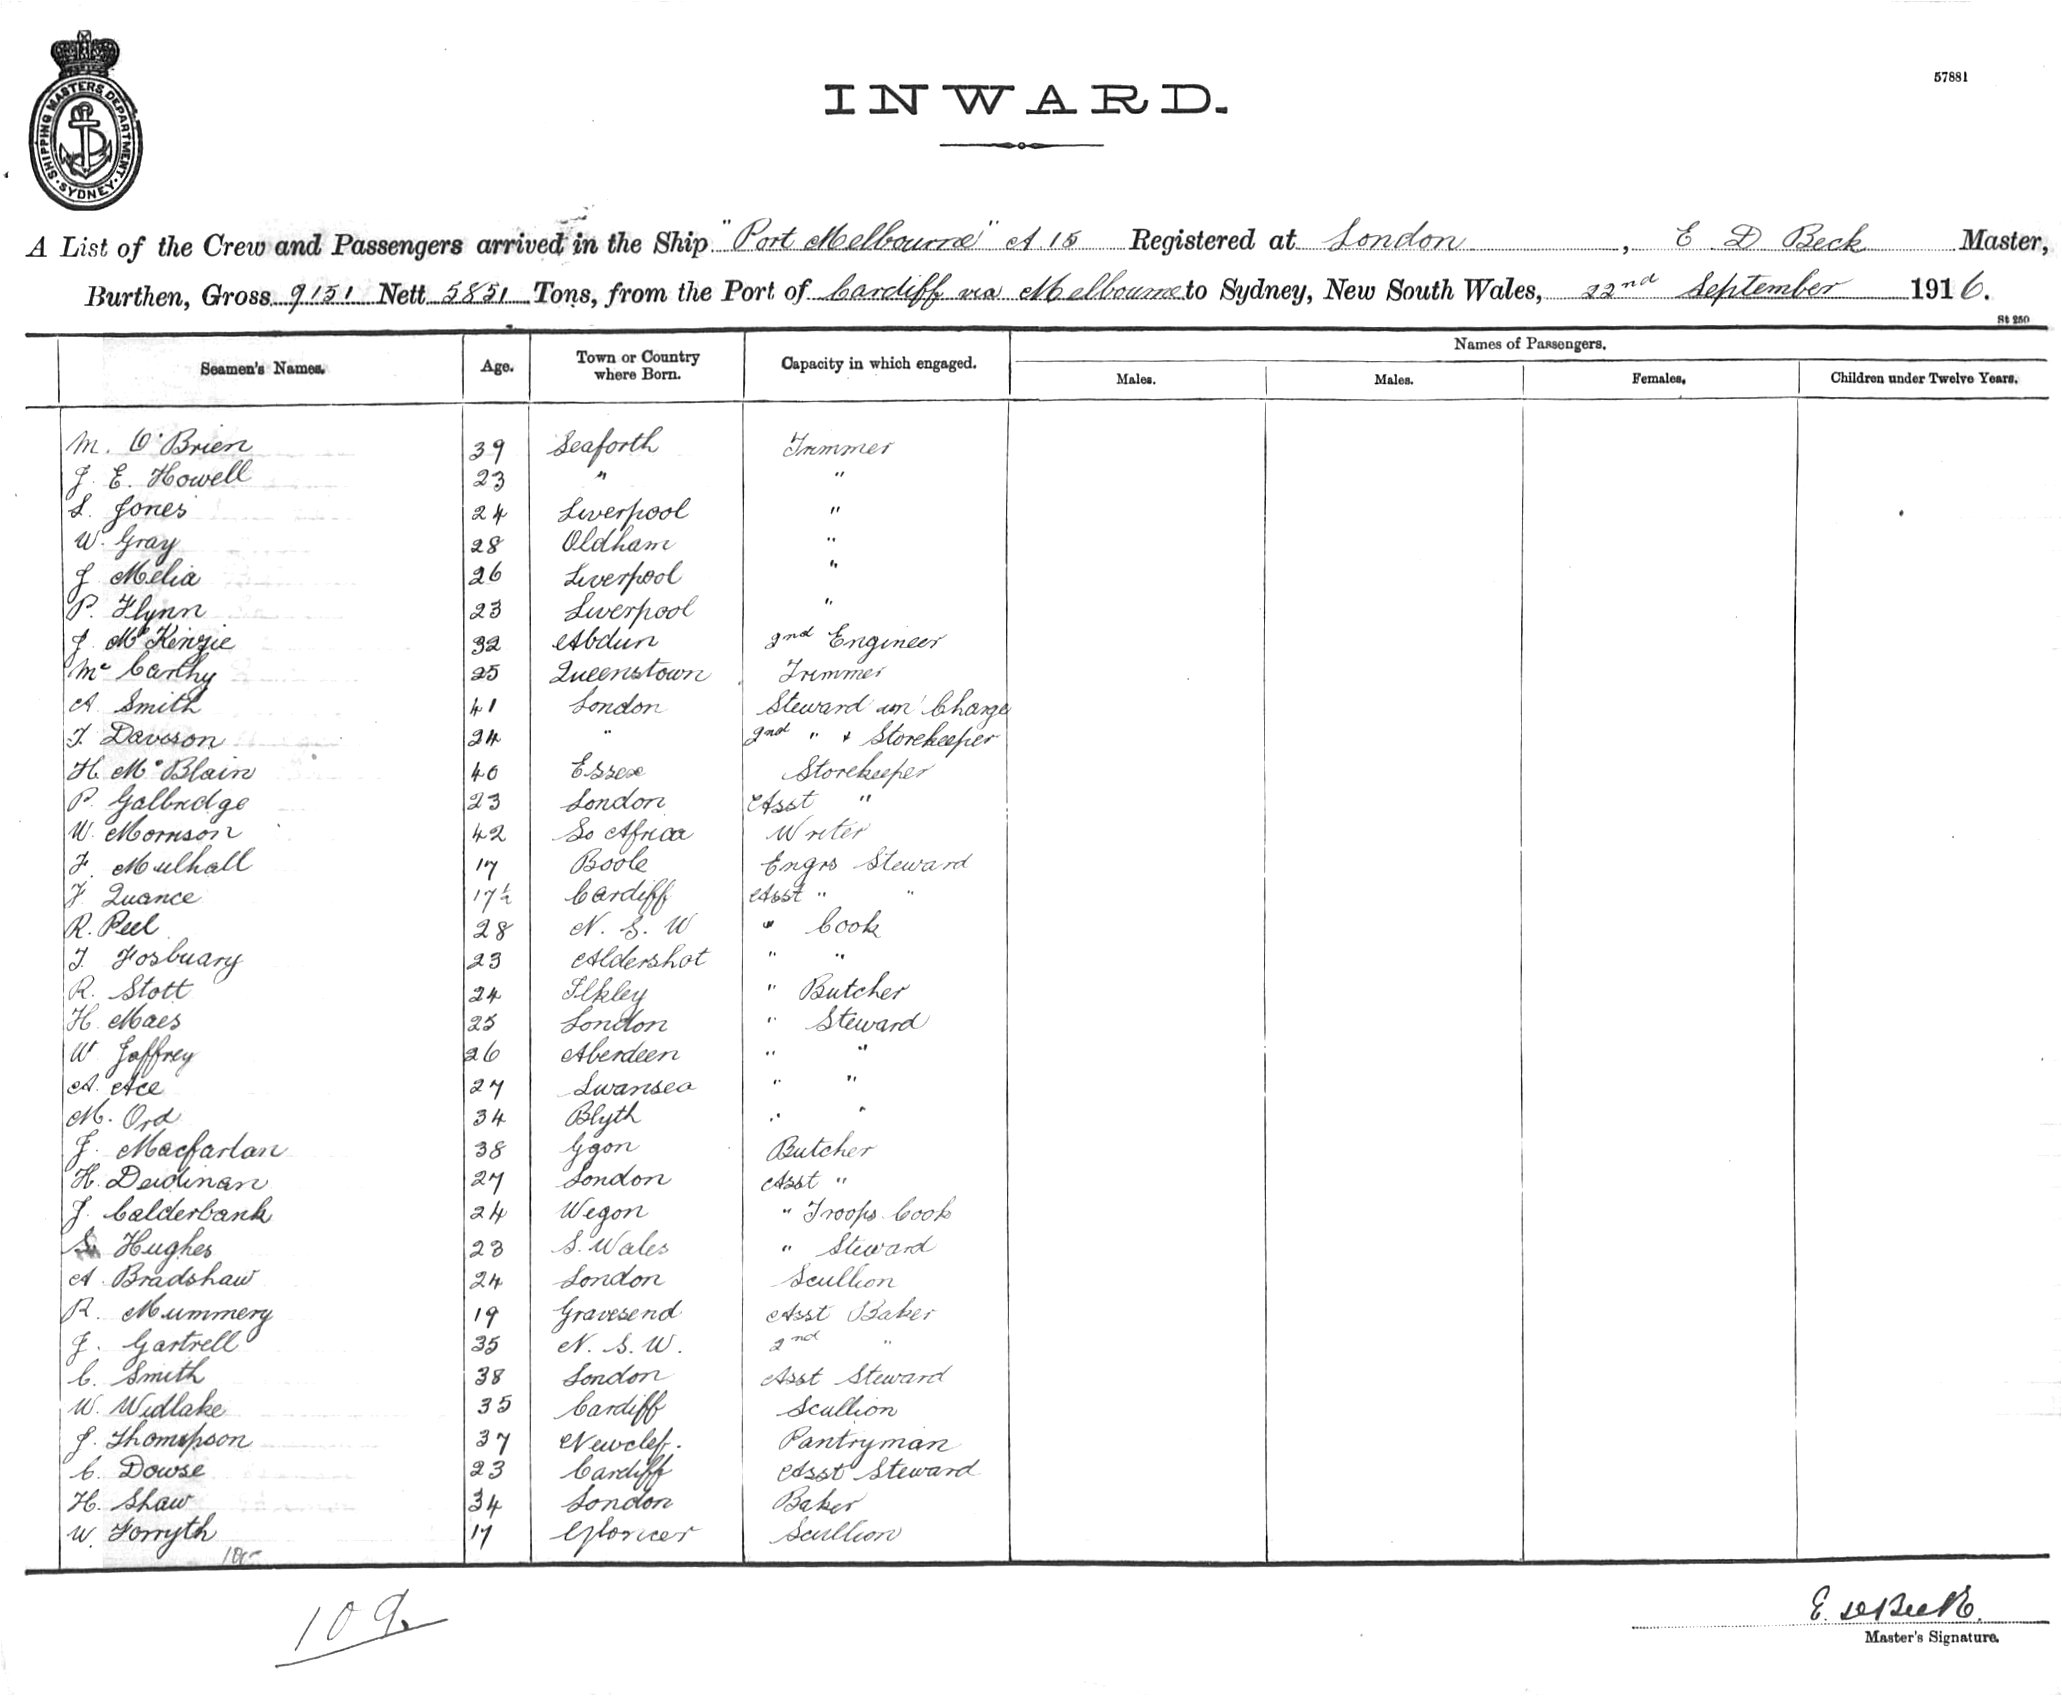 SHIPPING MASTERS DEPARTMENT
SYDNEY
57881
INWARD.
A List of the Crew and Passengers arrived in the Ship "Port Melbourne" A 15 Registered at London, E D Beck Master,
Burthen, Gross 9151 Nett 5851 Tons, from the Port of Cardiff via Melbourne to Sydney, New South Wales, 22nd September 1916.
St 250
Seamen's Names. Age. Town or Country where Born. Capacity in which engaged. Names of Passengers.
Males. Males. Females. Children under Twelve Years.
M. O'Brien 39 Seaforth Trimmer
J. E. Howell 23 " "
S. Jones 24 Liverpool "
W. Gray 28 Oldham "
J Melia 26 Liverpool "
P. Flynn 23 Liverpool "
J McKenzie 32 Abdun 2nd Engineer
Mc Carthy 25 Queenstown Trimmer
A Smith 41 London Steward in Charge
T. Davison 24 " 2nd " & Storekeeper
H. McBlain 40 Essex Storekeeper
P. Galbridge 23 London Asst "
W. Morrison 42 So Africa Writer
F. Mulhall 17 Boole Engrs Steward
F. Quance 17½ Cardiff Asst " "
R. Peel 28 N. S. W " Cook
T. Fosbuary 23 Aldershot " "
R. Stott 24 Ilkley " Butcher
H. Maes 25 London " Steward
W Jaffrey 26 Aberdeen " "
A. Ace 27 Swansea " "
M. Ord 34 Blyth " "
J. Macfarlan 38 Ggon Butcher
H. Deidinan 27 London Asst "
J. Calderbank 24 Wegon " Troops Cook
S. Hughes 23 S. Wales " Steward
A Bradshaw 24 London Scullion
R. Mummery 19 Gravesend Asst Baker
J. Gartrell 35 N. S. W. 2nd "
C. Smith 38 London Asst Steward
W. Widlake 35 Cardiff Scullion
J. Thompson 37 Newclef. Pantryman
C. Dowse 23 Cardiff Asst Steward
H. Shaw 34 London Baker
W. Forryth 17 Gloricer Scullion
109
E. D Beck
Master's Signature.